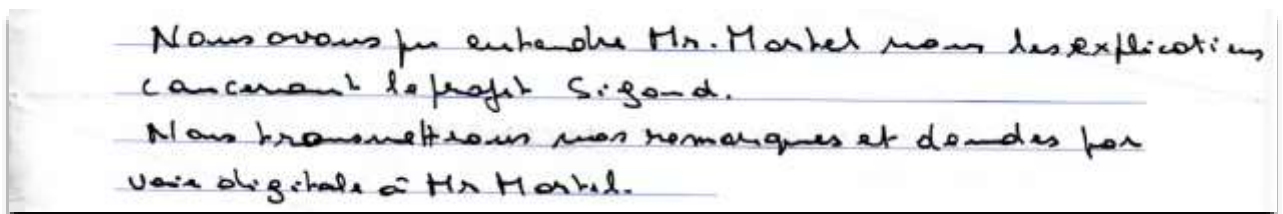 Nous avons pu entendre Mr. Martel nous les explications
concernant le projet Sigond.
Nous transmettrons nos remarques et demdes par
voie digitale à Mr Martel.